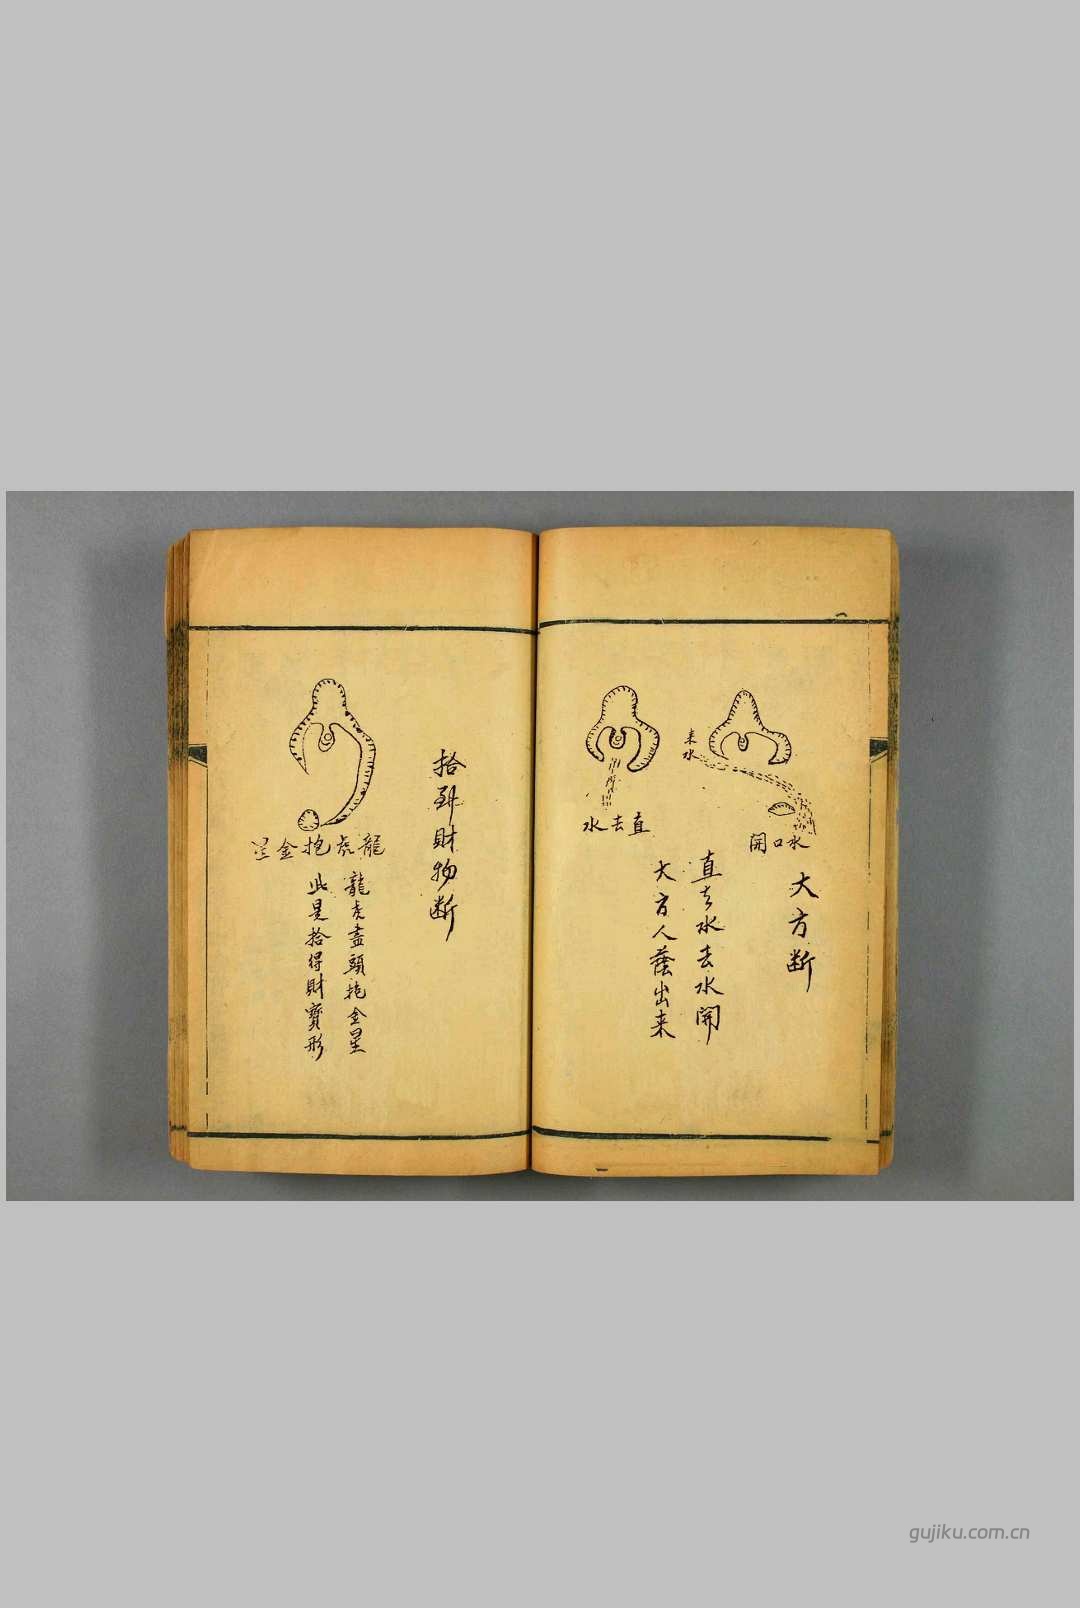 来水
水口開
大方断
直去水
直去水去水開
大方人蔭出来
拾到財物断
龍虎抱金星
龍虎盡頭抱金星
此是拾得財寶形
gujiku.com.cn